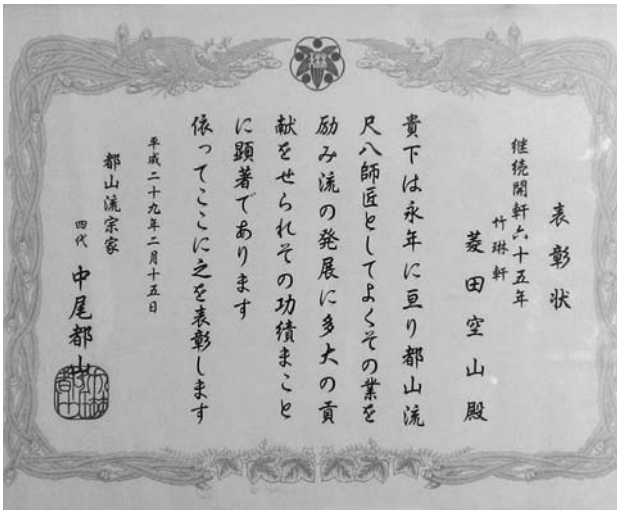 表彰状
継続開軒六十五年
竹琳軒
菱田空山殿
貴下は永年に亘り都山流
尺八師匠としてよくその業を
励み流の発展に多大の貢
献をせられその功績まこと
に顕著であります
依ってここに之を表彰します
平成二十九年二月十五日
都山流宗家
四代 中尾都山